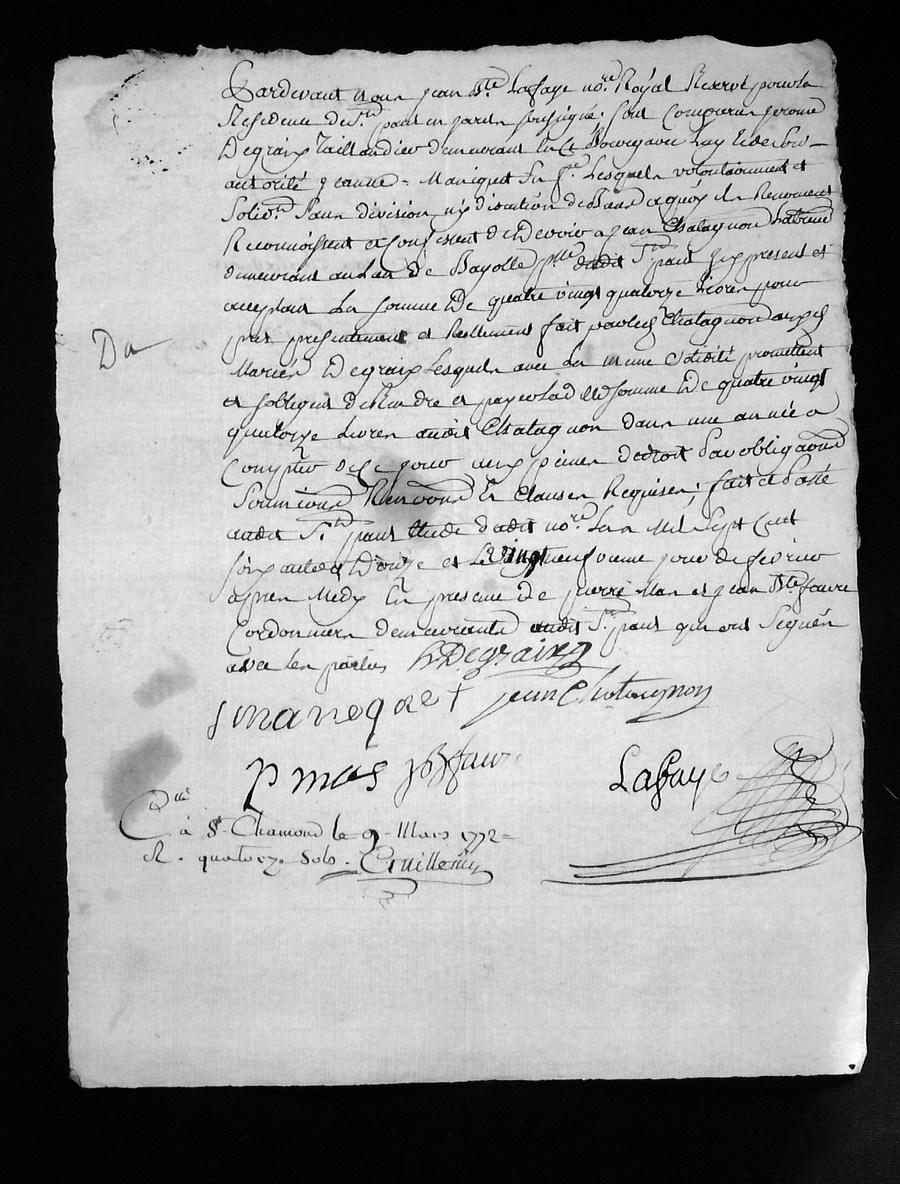 Pardevant nous jean Bte Lafaye nore Royal Reservé pour la
Residence de St paul en jarest soussigné; sont Comparus jerome
Degraix Taillandier demeurant en Ct Bourg avec Luy et de son
autorité jeanne Maniquet sa fe. Lesquels volontairement et
solidt sans division ny discution de biens a quoy ils Renoncent
Reconnoissent et Confessent de Devoir a jean Chatagnon
demeurant au Lieu de Bayolle psse dudit St paul icy present et
acceptant La somme De quatre vingt quatorze Livres pour
prest presentement et Reellement fait par led Chatagnon auxd
Mariés Degraix Lesquels avec La meme solidité promettent
et sobligent de Rendre et payer Ladite somme De quatre vingt
quatorze Livres audit Chatagnon dans une année a
Compter de Ce jour
Clauses Requises; fait et Passé
audit St paul Etude dudit nore Lan Mil Sept Cent
soixante et Douze et Le Vingt neuf vieme jour de fevrier
apres Midy En presence de pierre Mas et jean Bte faure
Cordonniers demeurants audit St paul qui ont signés
avec les parties h Degraix
j maneqet jean Chatagnon
p mas jb faure
Lafaye
Da
Clé
à St Chamond le 9 Mars 1772
R. quatorze sols.